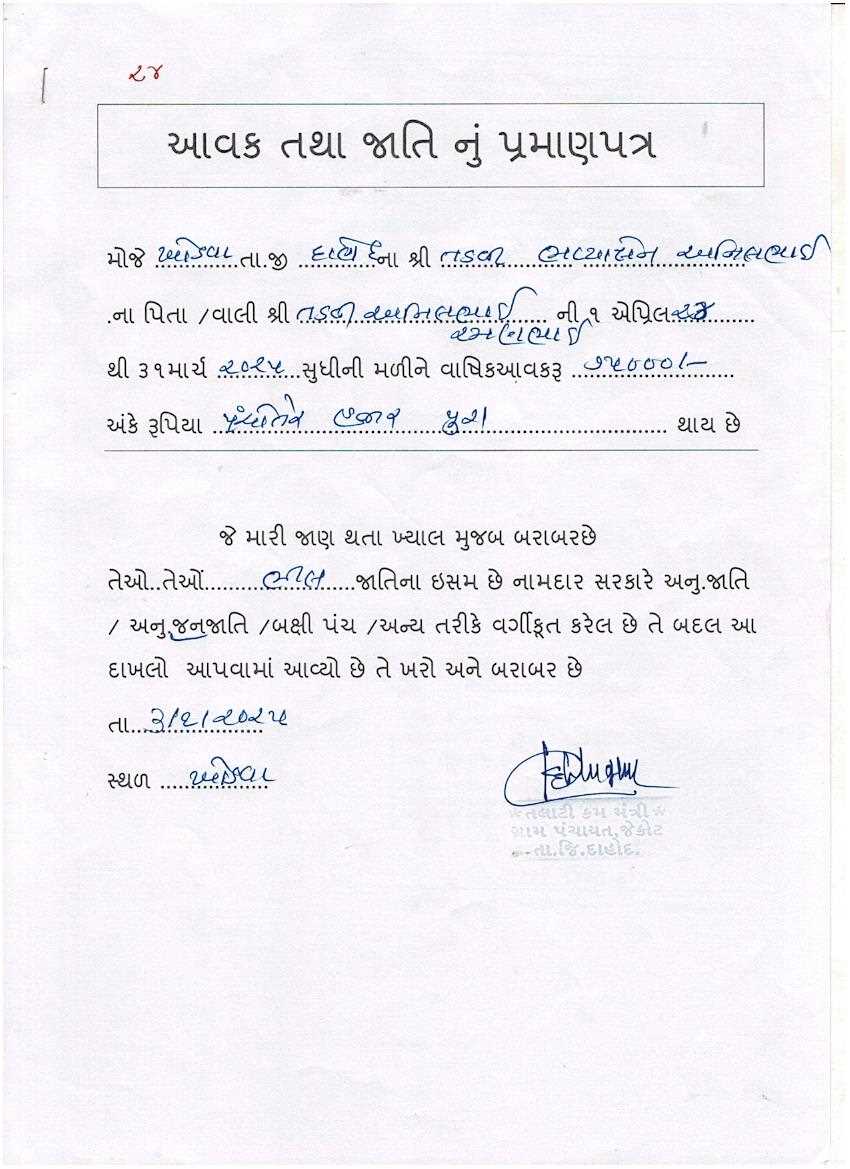 ૨૪
આવક તથા જાતિ નું પ્રમાણપત્ર
મોજે તા.જી દાહોદના શ્રી તડવી અનિલભાઈ
.ના પિતા /વાલી શ્રી તડવી અનિલભાઈ ની ૧ એપ્રિલ ૨૪
રમણભાઈ
થી ૩૧માર્ચ ૨૦૨૫ સુધીની મળીને વાષિકઆવકરૂ ૭૫૦૦૦/-
અંકે રૂપિયા પંચોતેર હજાર પુરા થાય છે
જે મારી જાણ થતા ખ્યાલ મુજબ બરાબરછે
તેઓ..તેઓં ભીલ જાતિના ઇસમ છે નામદાર સરકારે અનુ.જાતિ
/ અનુ.જનજાતિ /બક્ષી પંચ /અન્ય તરીકે વર્ગીકૃત કરેલ છે તે બદલ આ
દાખલો આપવામાં આવ્યો છે તે ખરો અને બરાબર છે
તા. ૩/૬/૨૦૨૫
સ્થળ
તલાટી કમ મંત્રી
ગ્રામ પંચાયત,જેકોટ
તા.જિ.દાહોદ.